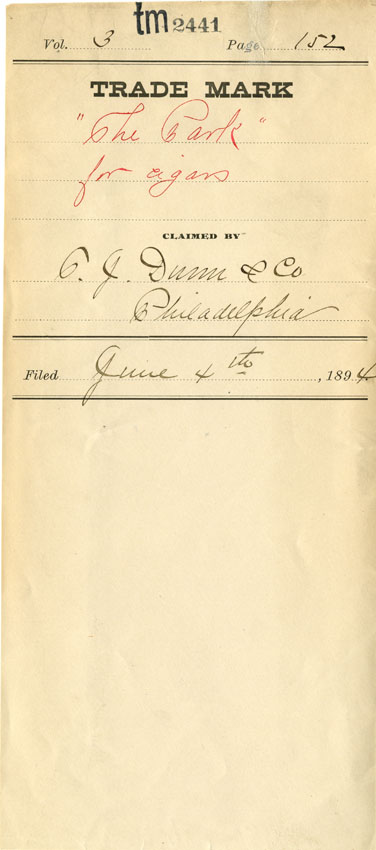 tm 2441
Vol. 3 Page 152
TRADE MARK
"The Park"
for cigars
CLAIMED BY
T. J. Dunn & Co
Philadelphia
Filed June 4th, 1894